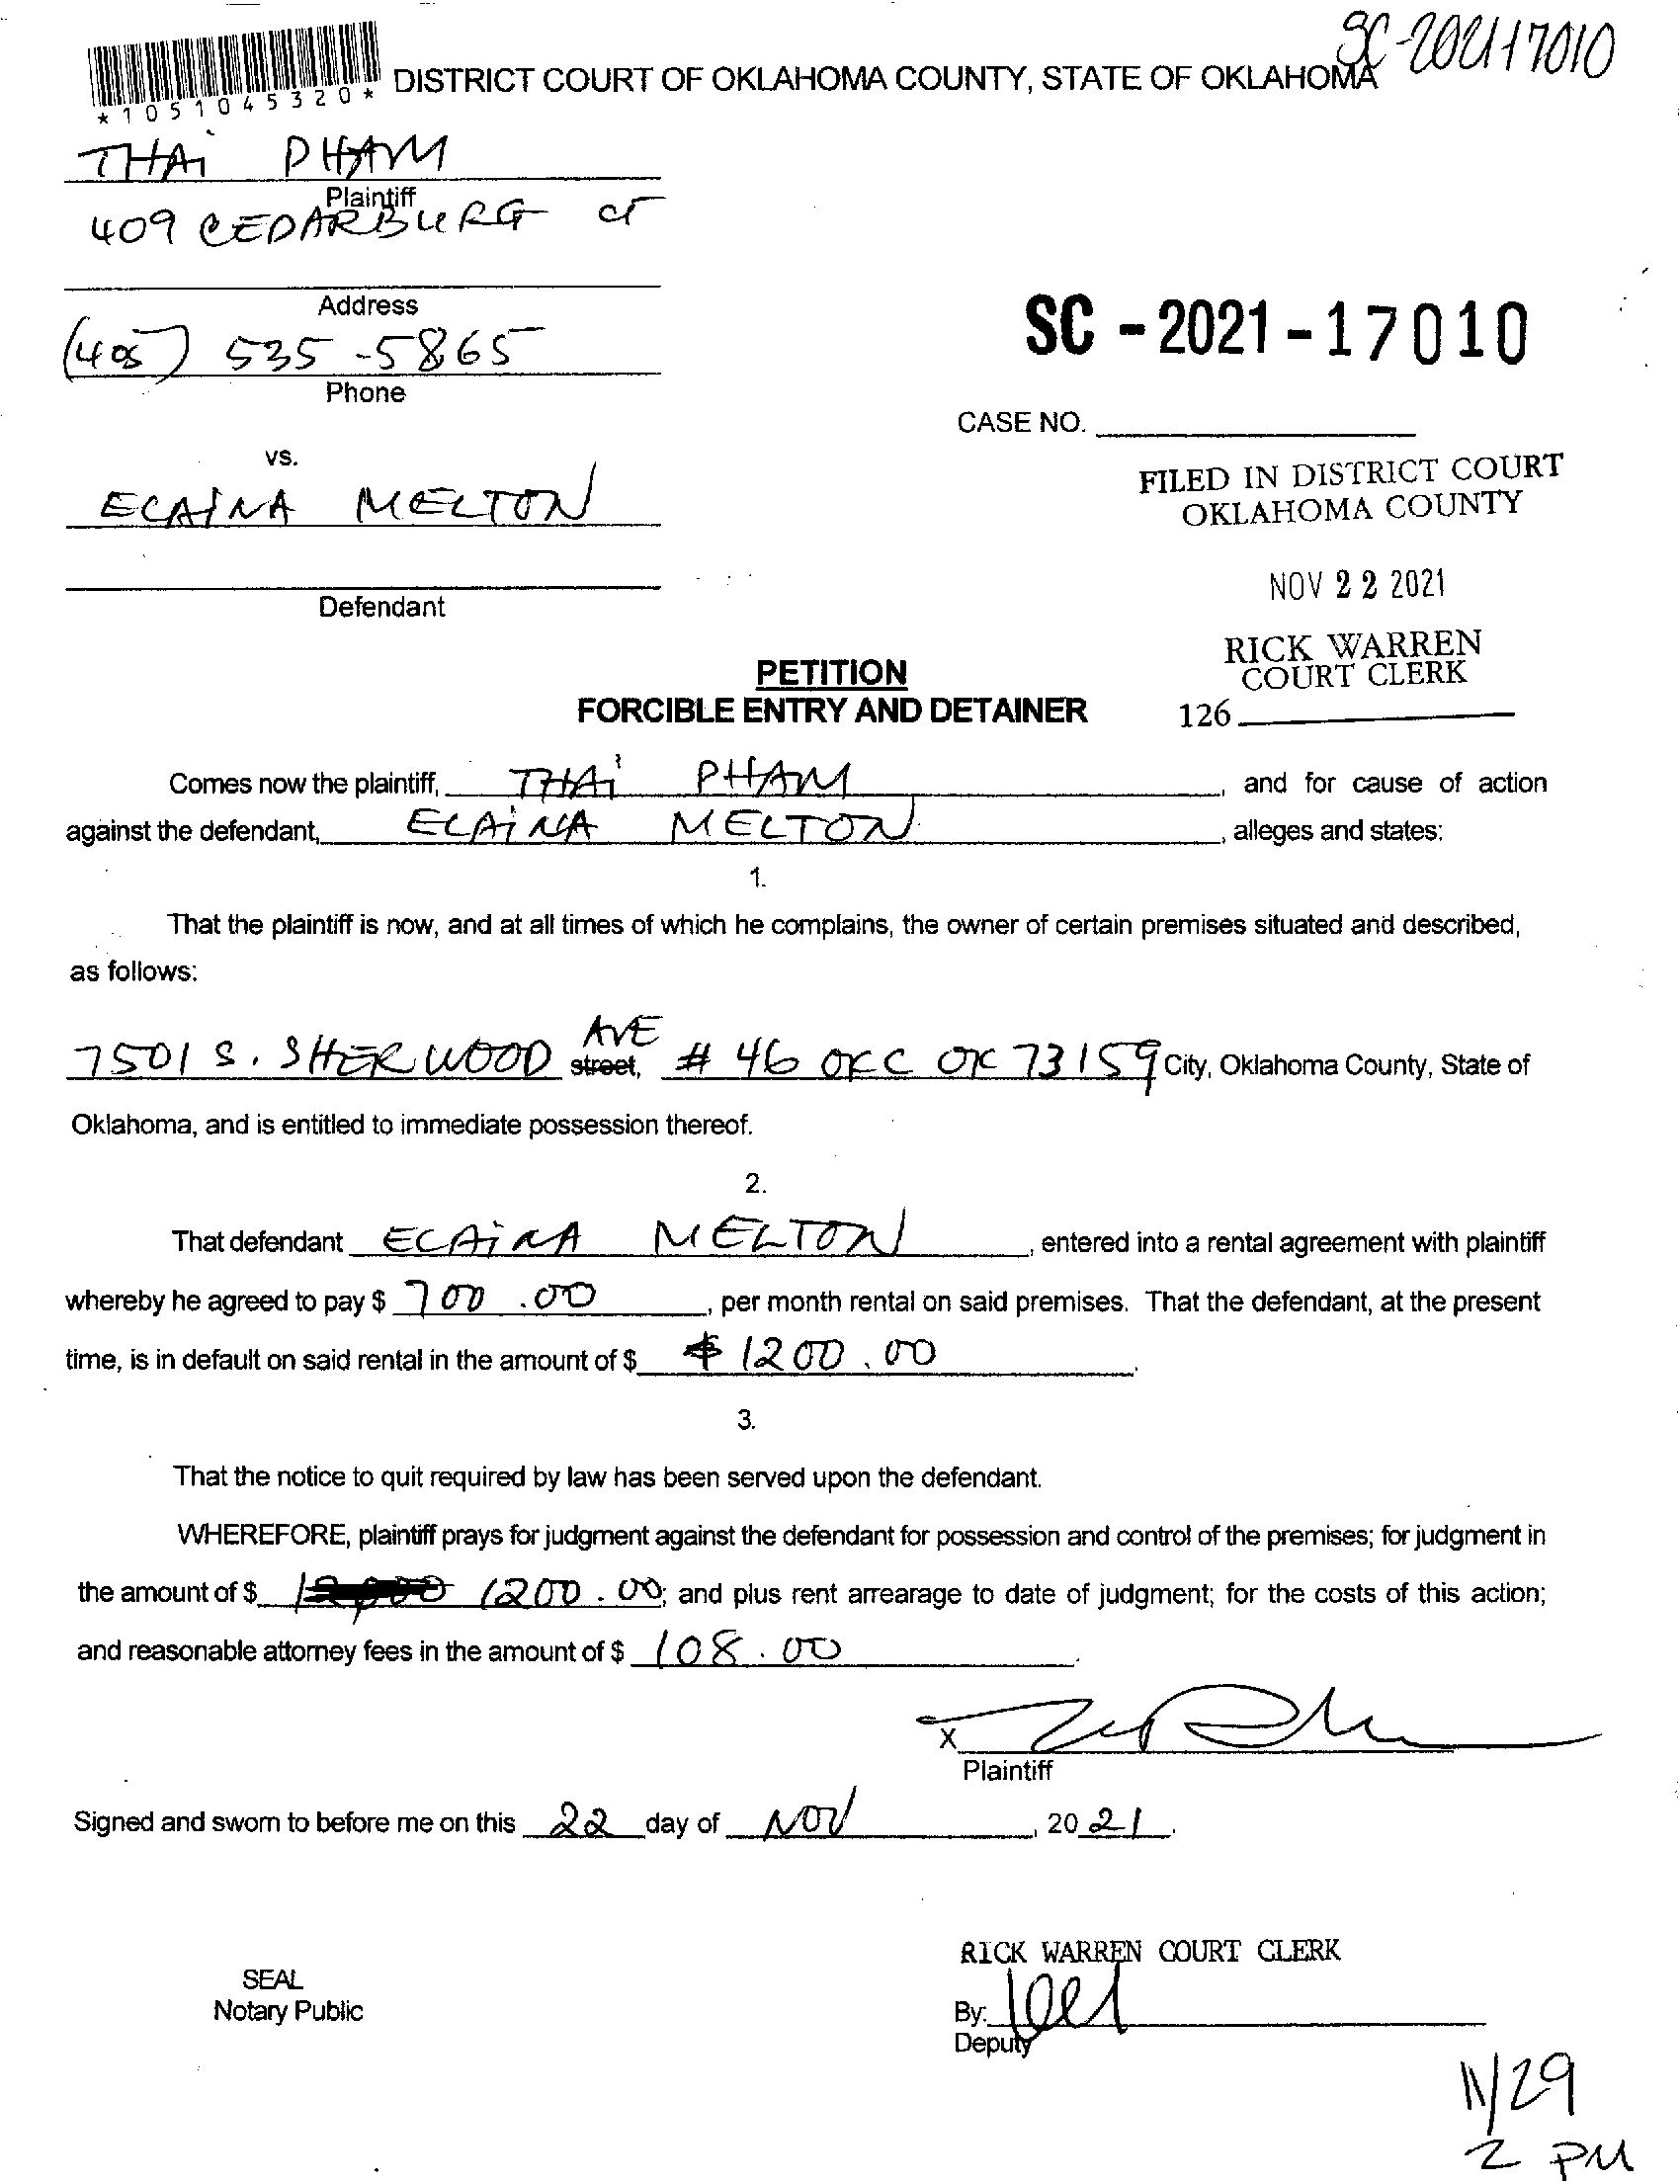 SC-2021-17010
*1051045320*
DISTRICT COURT OF OKLAHOMA COUNTY, STATE OF OKLAHOMA
THAi PHAM
Plaintiff
409 CEDARBURG CT
Address
(405) 535-5865
Phone
SC - 2021 - 17010
CASE NO.
vs.
ELAINA MELTON
Defendant
FILED IN DISTRICT COURT
OKLAHOMA COUNTY
NOV 22 2021
RICK WARREN
COURT CLERK
126
PETITION
FORCIBLE ENTRY AND DETAINER
Comes now the plaintiff, THAi PHAM, and for cause of action
against the defendant, ELAiNA MELTON, alleges and states:
1.
That the plaintiff is now, and at all times of which he complains, the owner of certain premises situated and described,
as follows:
7501 S. SHERWOOD AVE street, # 46 OKC OK 73159 City, Oklahoma County, State of
Oklahoma, and is entitled to immediate possession thereof.
2.
That defendant ELAiNA MELTON, entered into a rental agreement with plaintiff
whereby he agreed to pay $ 700.00, per month rental on said premises. That the defendant, at the present
time, is in default on said rental in the amount of $ $ 1200.00.
3.
That the notice to quit required by law has been served upon the defendant.
WHEREFORE, plaintiff prays for judgment against the defendant for possession and control of the premises; for judgment in
the amount of $ 1200.00; and plus rent arrearage to date of judgment; for the costs of this action;
and reasonable attorney fees in the amount of $ 108.00.
X
Plaintiff
Signed and sworn to before me on this 22 day of NOV, 2021.
RICK WARREN COURT CLERK
SEAL
Notary Public
By:
Deputy
11/29
2 PM